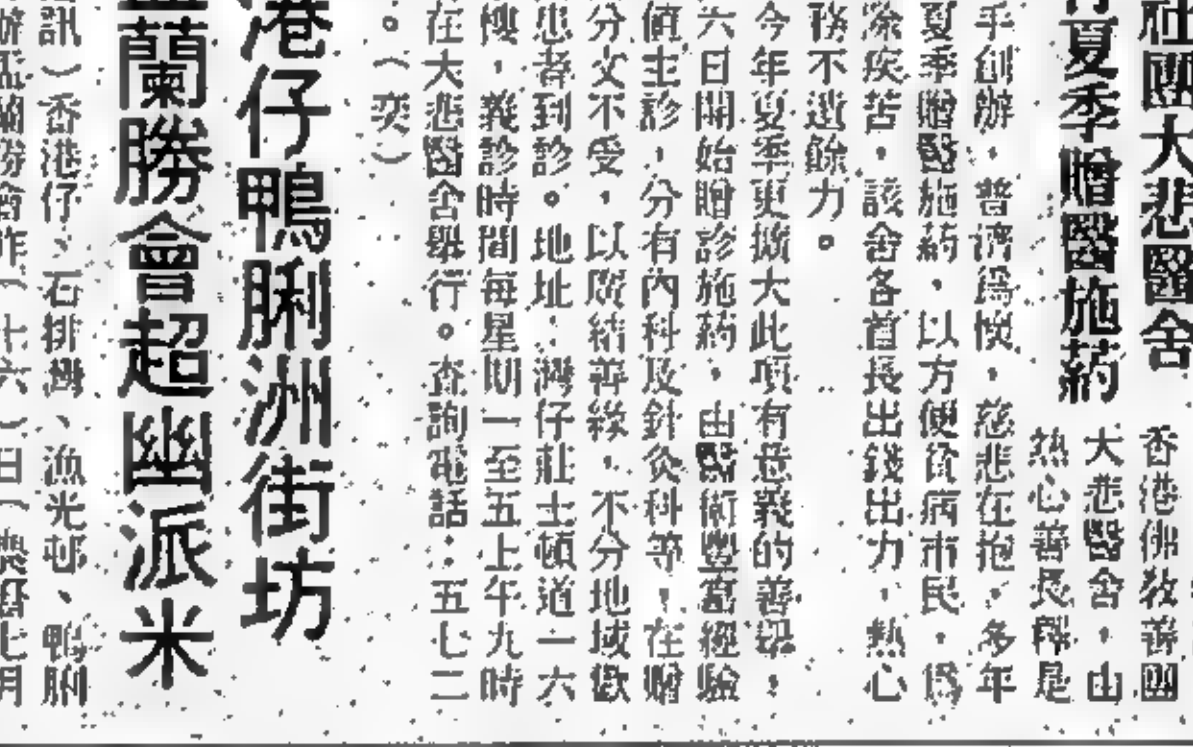 社團大悲醫舍
夏季贈醫施葯
香港佛教善團
大悲醫舍，由
熱心善長釋是
手創辦，普濟為懷，慈悲在抱，多年
夏季贈醫施葯，以方便貧病市民，為
除疾苦，該舍各首長出錢出力，熱心
務不遺餘力。
今年夏季更擴大此項有意義的善舉，
六日開始贈診施葯，由醫術豐富經驗
值主診，分有內科及針灸科等，在贈
分文不受，以廣結善緣，不分地域歡
患者到診。地址：灣仔莊士頓道一六
樓，義診時間每星期一至五上午九時
在大悲醫舍舉行。查詢電話：五七二
。（奕）
港仔鴨脷洲街坊
蘭勝會超幽派米
訊）香港仔、石排灣、漁光邨、鴨脷
辦盂蘭勝會昨（廿六）日（農曆七月